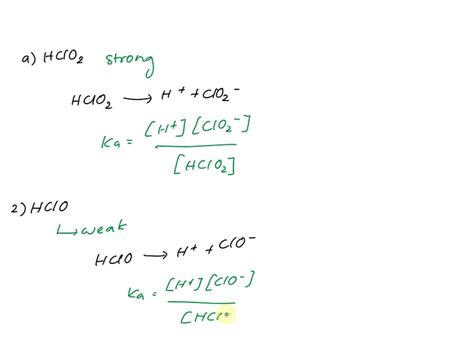 a) HClO₂ strong
HClO₂ ⟶ H⁺ + ClO₂⁻
Ka = [H⁺][ClO₂⁻]
[HClO₂]
2) HClO
↳ weak
HClO ⟶ H⁺ + ClO⁻
Ka = [H⁺][ClO⁻]
[HCl